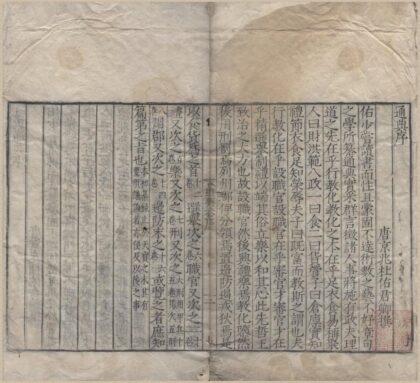 通典序
唐京兆杜佑君卿撰
佑少嘗讀書而性且蒙固不達術數之藝不好章句
之學所纂通典實采群言徵諸人事將施有政夫理
道之先在乎行教化教化之本在乎足衣食易稱聚
人曰財洪範八政一曰食二曰貨管子曰倉廩實知
禮節衣食足知榮辱夫子曰既富而教斯之謂也夫
行教化在乎設職官設職官在乎審官才審官才在
乎精選舉制禮以端其俗立樂以和其心此先哲王
致治之大方也故職官設然後興禮樂焉教化隳然
後用刑罰焉列州郡俾分領焉置邊防遏戎狄焉是
以食貨為之首選舉次之六卷職官又次之
禮又次之樂又次之刑又次之大刑用甲兵十五卷其次五刑
州郡又次之邊防末之十六卷或覽之者庶知
篇第之旨也本初纂錄止於天寶之末其有要須議論者亦便及以後之事